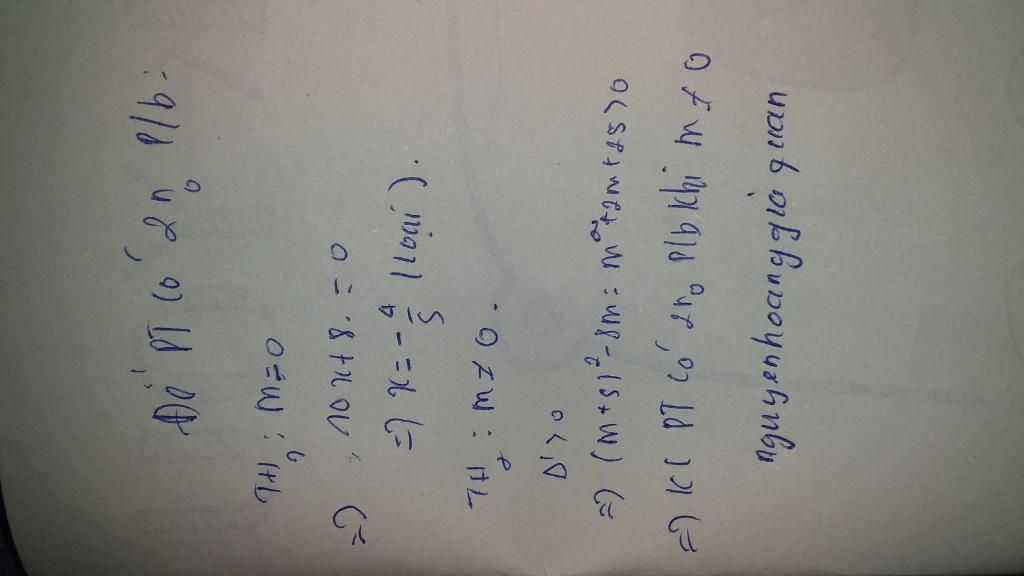 Để PT có 2 n₀ p/b:
TH₁: m = 0
=> 10x + 8 = 0
=> x = -4/5 (loại).
TH₂: m ≠ 0.
Δ' > 0
=> (m+5)² - 8m = m² + 2m + 25 > 0
=> KL PT có 2 n₀ p/b khi m ≠ 0
nguyenhoanggiaquan